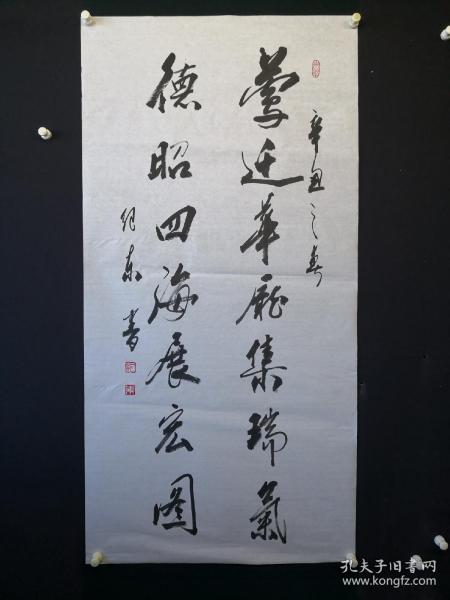 辛丑之春
莺迁華廳集瑞氣
德昭四海展宏图
纪东書
孔夫子旧书网
www.kongfz.com